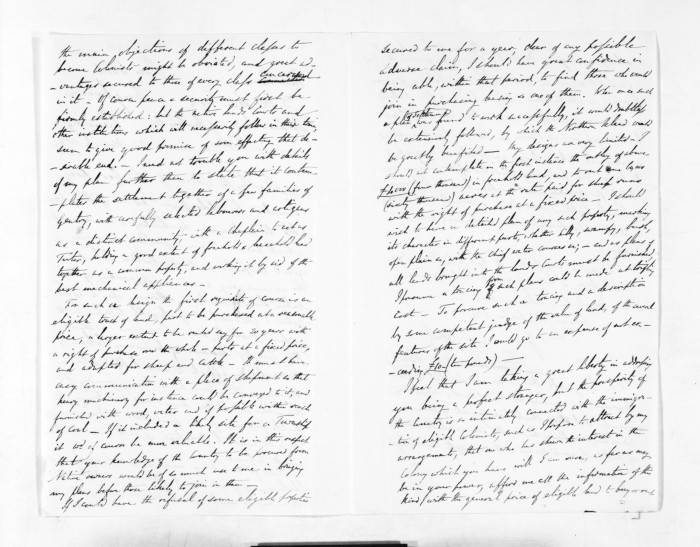 the main objections of different classes to
become Colonists might be obviated, and great ad-
-vantages secured to those of every class concerned
in it - Of course peace & security must first be
firmly established: but the native lands Courts and
other institutions which will necessarily follow in their train,
seem to give good promise of soon effecting that de-
-sirable end. - I need not trouble you with details
of my plan further than to state that it contem-
-plates the settlement together of a few families of
gentry, with carefully selected labourers and artizans
as a distinct community, with a Chaplain to act as
Tutor, holding a good extent of freehold & leasehold land
together as a common property, and working it by aid of the
best mechanical appliances -
For such a design the first requisite of course is an
eligible tract of land, part to be purchased at a reasonable
price, a larger extent to be rented say for 20 years with
a right of purchase over the whole - parts at a fixed price,
and adapted for sheep and cattle - It must have
easy communication with a place of shipment so that
heavy machinery for instance could be conveyed to it, and
furnished with wood, water and if possible within reach
of coal - If it included a likely site for a Township
it would of course be more valuable. It is in this respect
that your knowledge of the country to be procured from
Native owners would be of so much use to me in bringing
my plans before those likely to join in them -
If I could have the refusal of some eligible properties
secured to me for a year, clear of any possible
adverse claim, I should have great confidence in
being able, within that period, to find those who would
join in purchasing leasing as one of them. When once such
a plan was found to work successfully, it would doubtless
be extensively followed, by which the Northern Island would
be greatly benefited - My designs are very limited - I
should contemplate in the first instance the outlay of above
£4,000 (four thousand) in freehold land, and to rent
(sixty thousand) acres at the rate paid for sheep runs
with the right of purchase at a fixed price - I should
wish to have a detailed plan of any such property, marking
its character in different parts, whether hilly, swampy, bush,
open plain &c, with the chief water courses &c; - and as plans of
all lands brought into the Land Courts must be furnished
I presume a tracing from such plans could be made at trifling
cost - To procure such a tracing and a description
by some competent judge of the value of land, of the
features of the site I would go to an expense of not ex-
-ceeding £10 (ten pounds) -
I feel that I am taking a great liberty in addressing
you being a perfect stranger, but the prosperity of
the Country is so intimately connected with the immigra-
-tion of eligible Colonists, such as I hope to attract by my
arrangements, that one who has shewn the interest in the
Colony which you have will I am sure, as far as may
be in your power, afford me all the information of the
kind, with the general price of eligible land to buy or rent